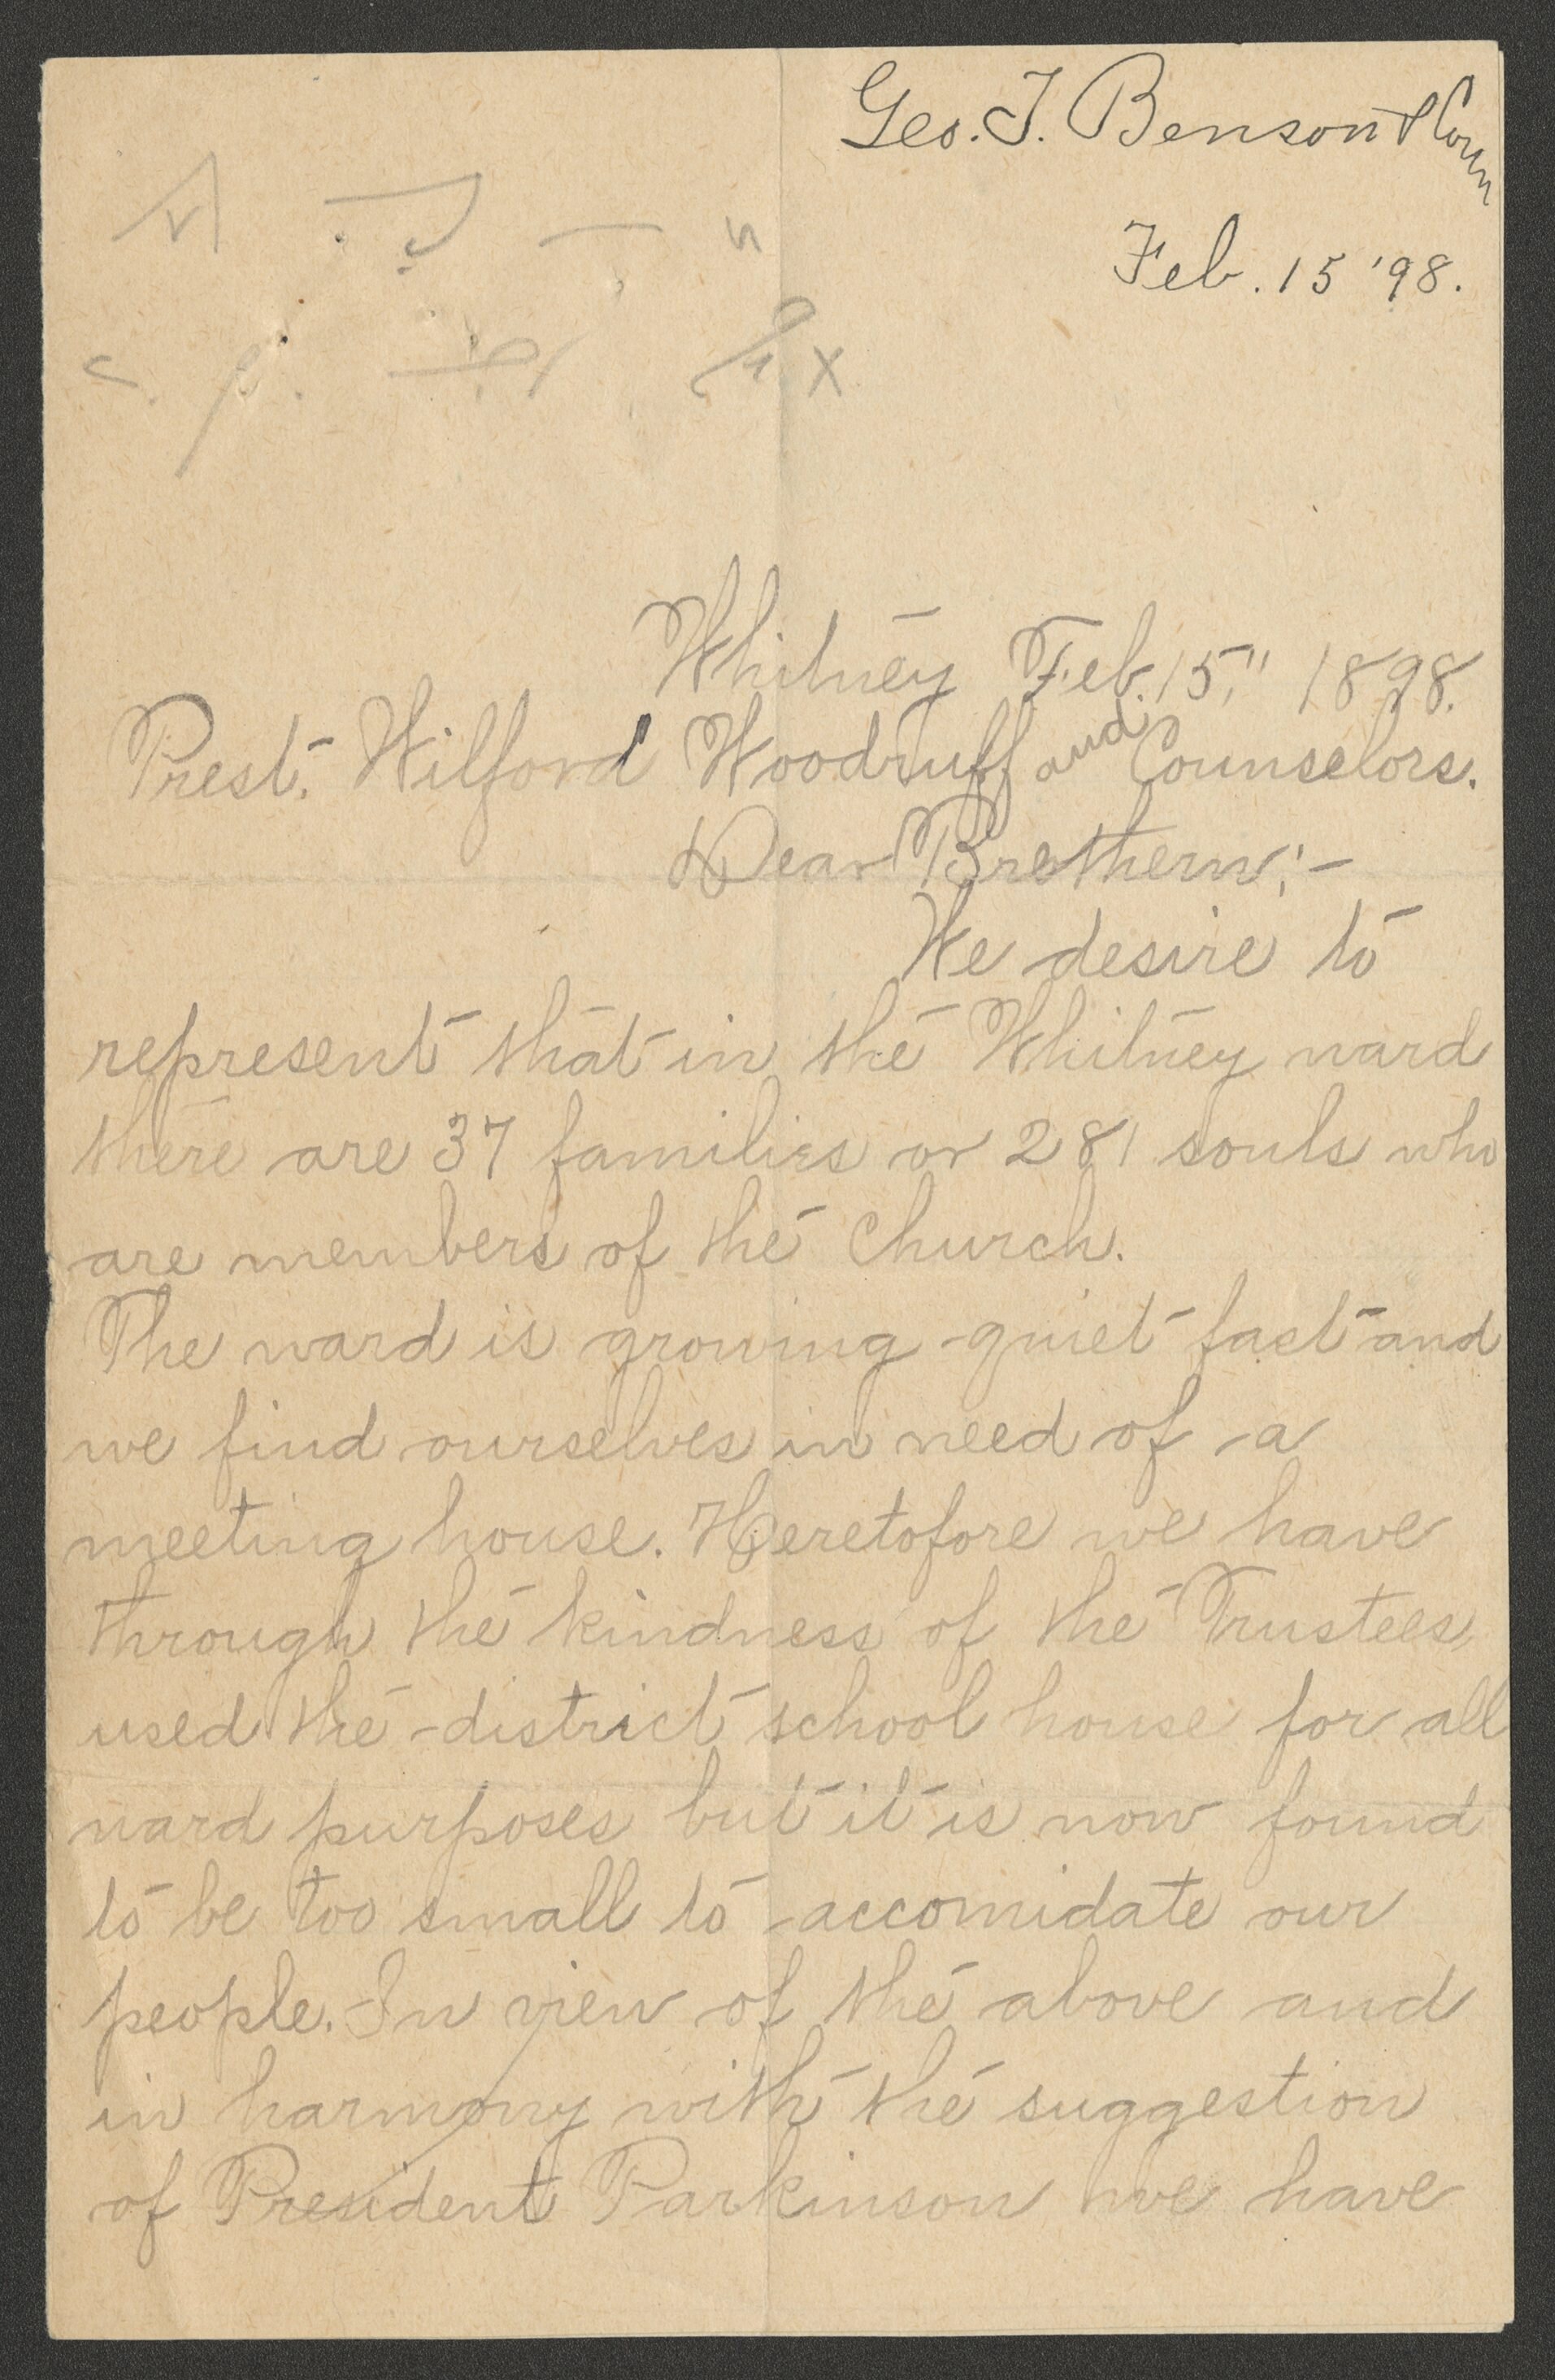 Geo. T. Benson & Coun
Feb. 15 '98.
X
Whitney Feb. 15," 1898.
Prest. Wilford Woodruff and Counselors.
Dear Brethern;-
We desire to
represent that in the Whitney ward
there are 37 families or 281 souls who
are members of the Church.
The ward is growing quiet fast and
we find ourselves in need of a
meeting house. Heretofore we have
through the kindness of the Trustees,
used the district school house for all
ward purposes but it is now found
to be too small to accomidate our
people. In view of the above and
in harmony with the suggestion
of President Parkinson we have